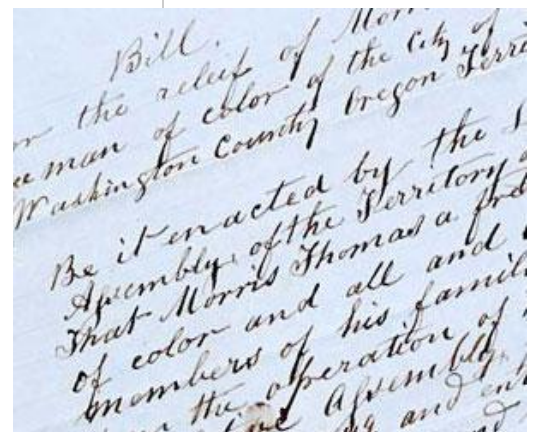 Bill.
the relief of
man of color of the City of
Washington County Oregon
Be it enacted by the
Assembly, of the Territory
That Morris Thomas a
of color and all and
members of his
the operation of
Assembly
and